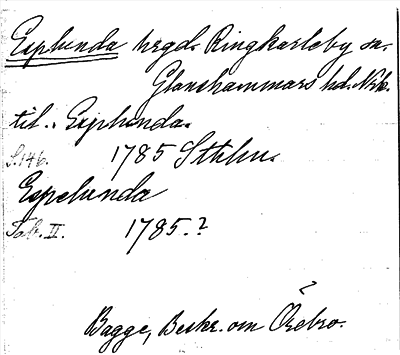 Esplunda hrgd. Ringkarleby sn.
Glanshammars hd. Nrk.
til.. Esplunda.
S.146. 1785 Sthlm.
Espelunda
Tab. II. 1785.?
Bagge, Beskr. om Örebro.